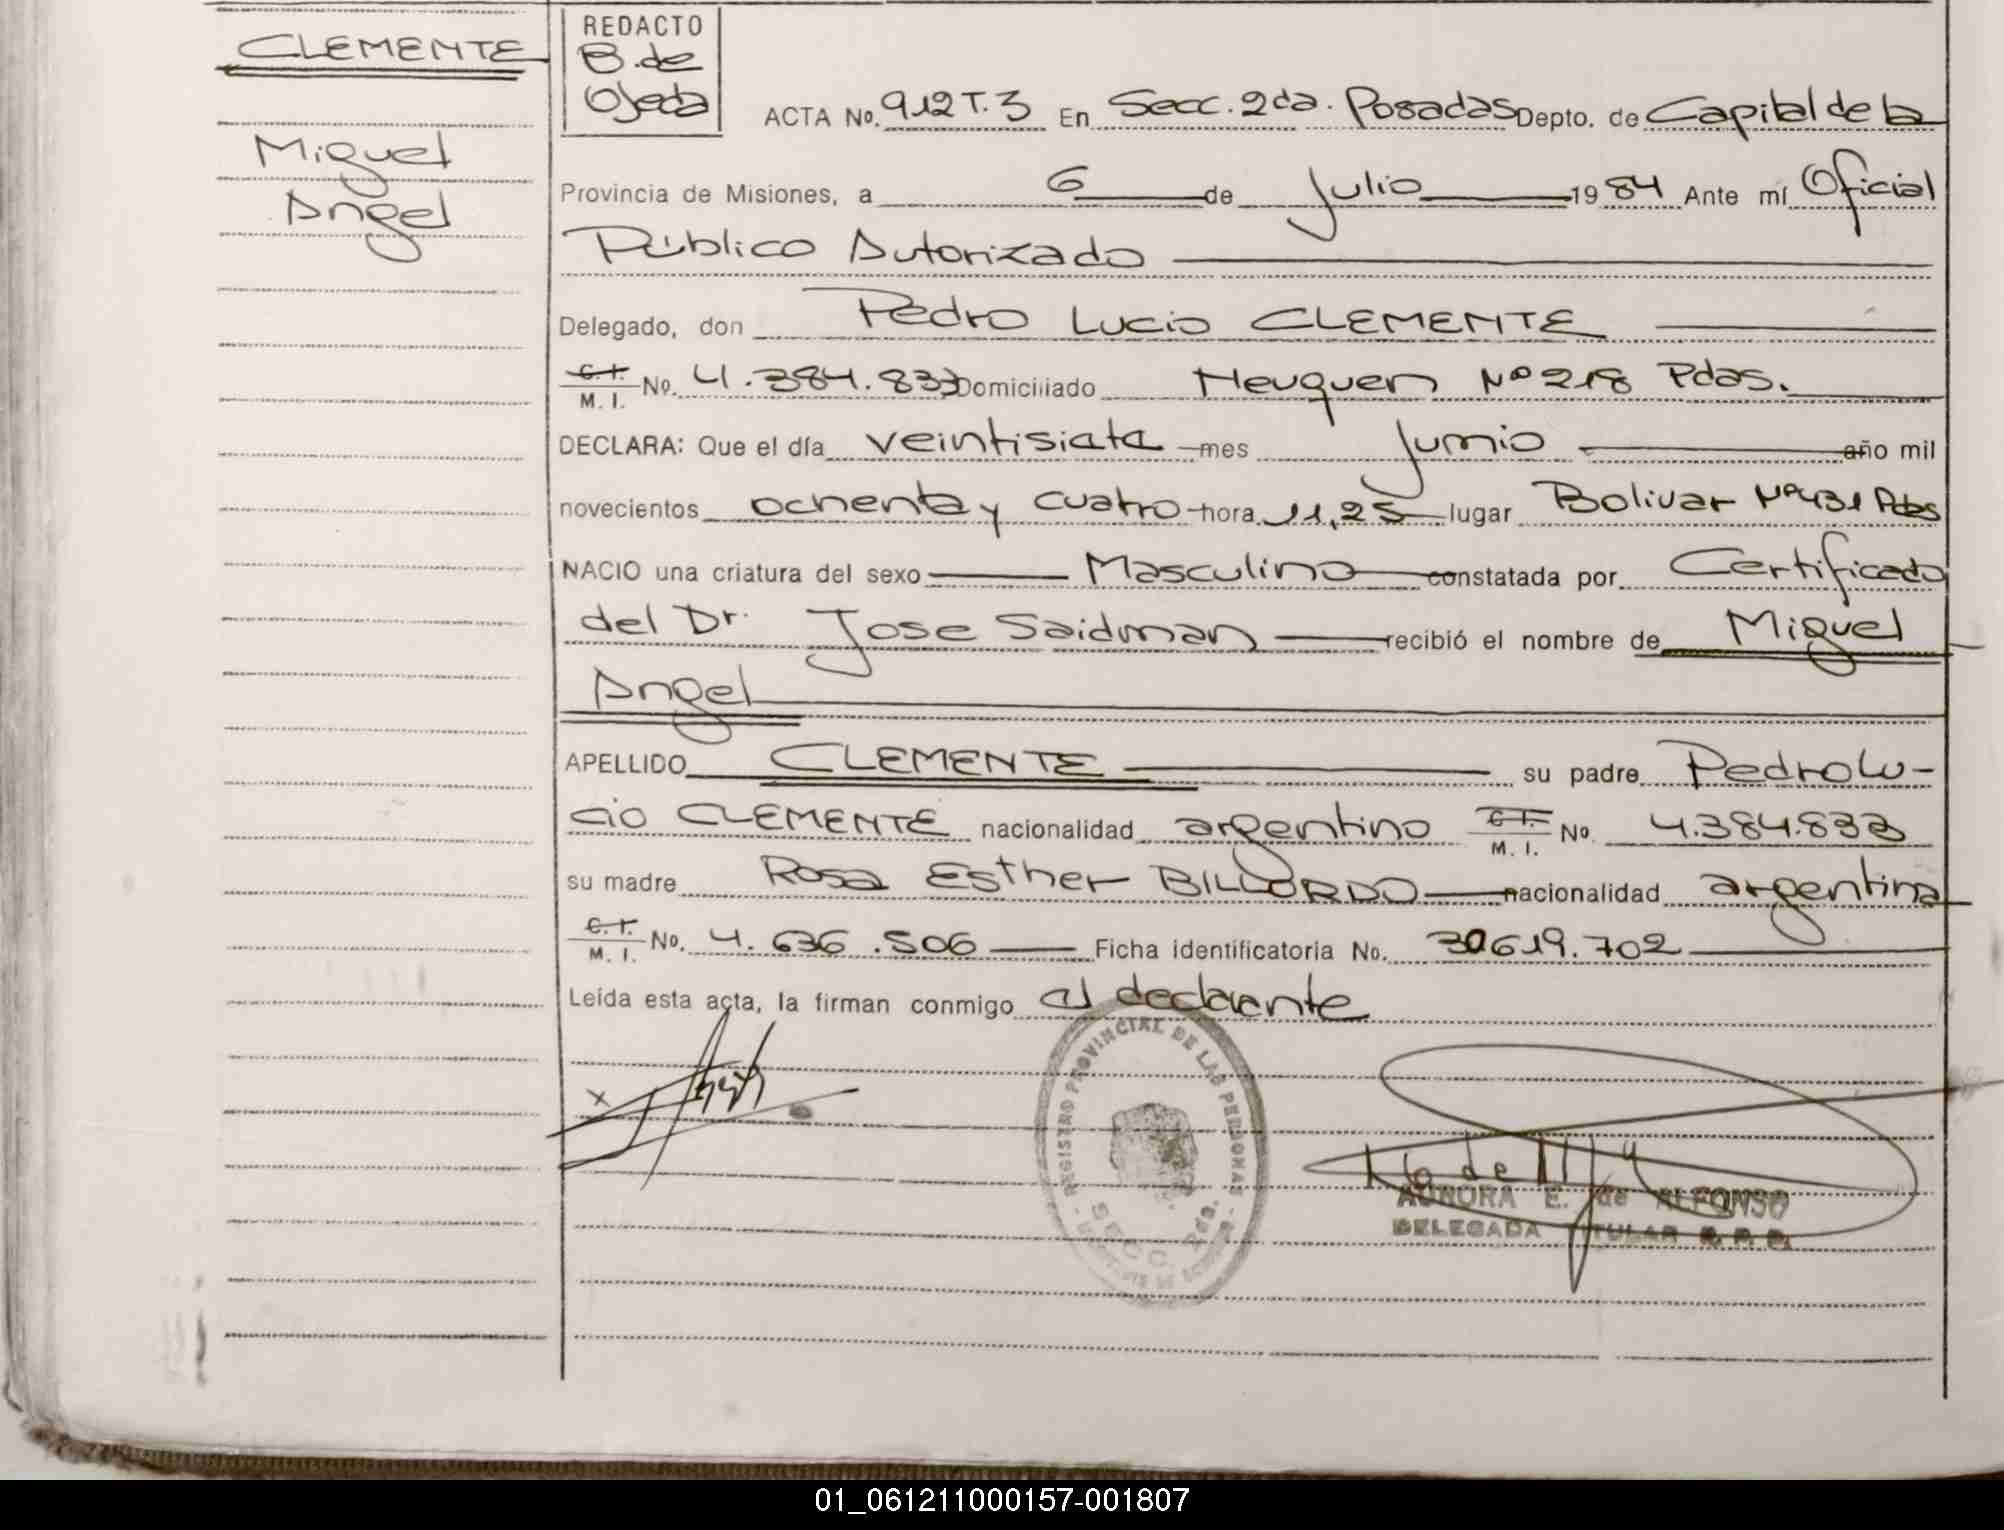 CLEMENTE
Miguel
Angel
REDACTO
B. de
Ojeda
ACTA No. 912 T. 3 En Secc. 2da. Posadas Depto. de Capital de la
Provincia de Misiones, a 6 de Julio 1984 Ante mí Oficial
Público Autorizado
Delegado, don Pedro Lucio CLEMENTE
C. I. / M. I. No. 4.384.833 Domiciliado Neuquen Nº 218 Pdas.
DECLARA: Que el día veintisiete mes Junio año mil
novecientos ochenta y cuatro hora 11,25 lugar Bolivar Nº 431 Pdas
NACIO una criatura del sexo Masculino constatada por Certificado
del Dr. Jose Saidman recibió el nombre de Miguel
Angel
APELLIDO CLEMENTE su padre Pedro Lu-
cio CLEMENTE nacionalidad argentino C. I. / M. I. No. 4.384.833
su madre Rosa Esther BILLORDO nacionalidad argentina
C. I. / M. I. No. 4.636.506 Ficha identificatoria No. 30619.702
Leída esta acta, la firman conmigo el declarante
REGISTRO PROVINCIAL DE LAS PERSONAS
SECC.
AURORA E. de ALFONSO
DELEGADA TITULAR R. P. P.
01_061211000157-001807